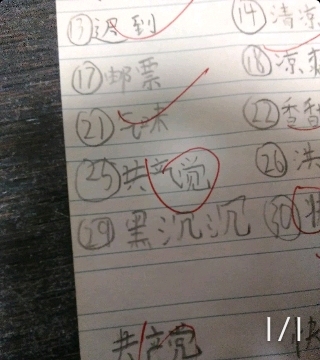 ⑬迟到 ⑭清凉
⑰邮票 ⑱凉爽
㉑气味 ㉒香
㉕共产觉 ㉖洪
㉙黑沉沉 ㉚
共产党 快
1/1